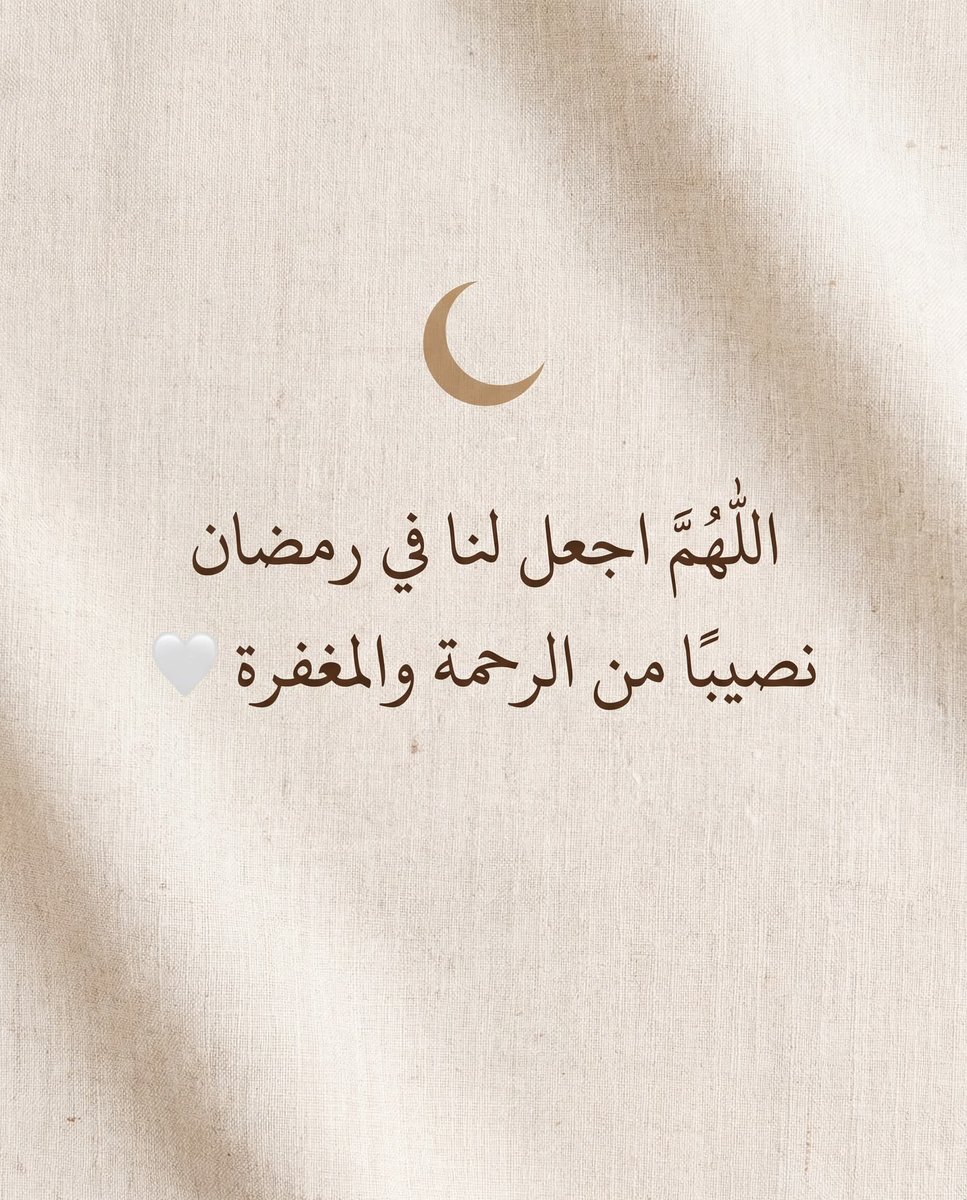 اللّٰهُمَّ اجعل لنا في رمضان
نصيبًا من الرحمة والمغفرة 🤍